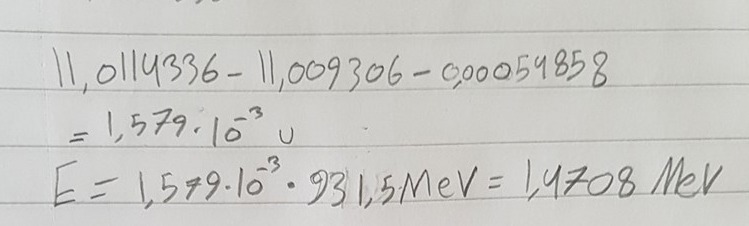 11,0114336 - 11,009306 - 0,00054858
= 1,579 · 10⁻³ u
E = 1,579 · 10⁻³ · 931,5 MeV = 1,4708 MeV